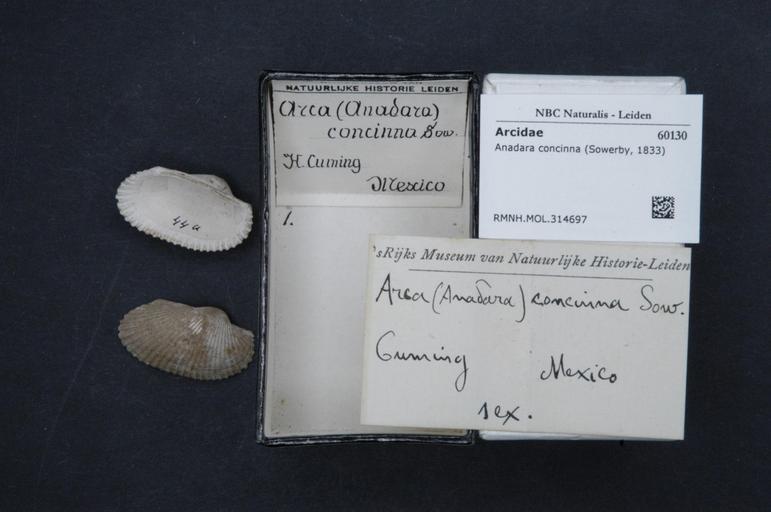 NATUURLIJKE HISTORIE LEIDEN
Arca (Anadara)
concinna Sow.
H. Cuming
Mexico
1.
44a
NBC Naturalis - Leiden
Arcidae 60130
Anadara concinna (Sowerby, 1833)
RMNH.MOL.314697
'sRijks Museum van Natuurlijke Historie-Leiden
Arca (Anadara) concinna Sow.
Cuming Mexico
1 ex.